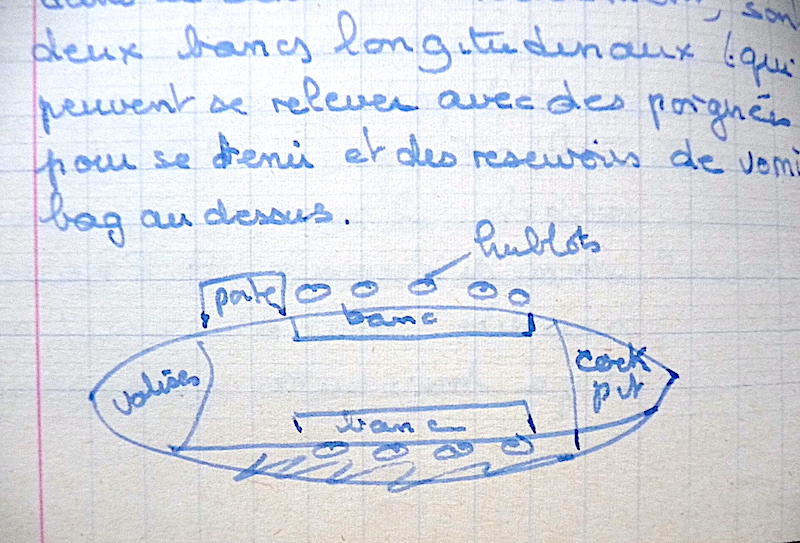 deux bancs longitudinaux (qui
peuvent se relever avec des poignées
pour se tenir et des reservoirs de vomi
bag au dessus.
hublots
porte
banc
valises
cock
pit
banc